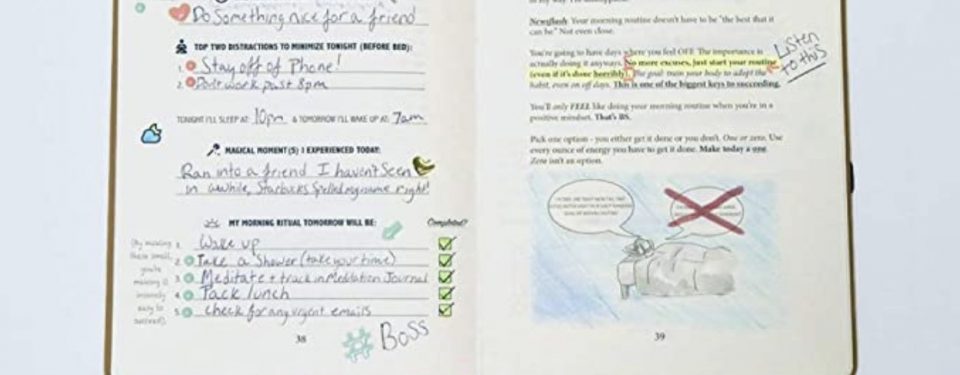 Do Something nice for a friend
TOP TWO DISTRACTIONS TO MINIMIZE TONIGHT (BEFORE BED):
1. Stay off of Phone!
2. Don't work past 8pm
TONIGHT I'LL SLEEP AT: 10pm & TOMORROW I'LL WAKE UP AT: 7am
MAGICAL MOMENT(S) I EXPERIENCED TODAY:
Ran into a friend I haven't Seen
in awhile, Starbucks Spelled my name right!
MY MORNING RITUAL TOMORROW WILL BE: Completed?
1. Wake up
2. Take a Shower (take your time)
3. Meditate + track in Meditation Journal
4. Pack lunch
5. check for any urgent emails
(By making
these small,
you're
making it
insanely
easy to
succeed).
#Boss
38
Newsflash: Your morning routine doesn't have to be "the best that it
can be." Not even close.
You're going to have days where you feel OFF. The importance is
actually doing it anyways. No more excuses, just start your routine
(even if it's done horribly). The goal: train your body to adapt the
habit, even on off days. This is one of the biggest keys to succeeding.
Listen
to this
You'll only FEEL like doing your morning routine when you're in a
positive mindset. That's BS.
Pick one option - you either get it done or you don't. One or zero. Use
every ounce of energy you have to get it done. Make today a one.
Zero isn't an option.
39